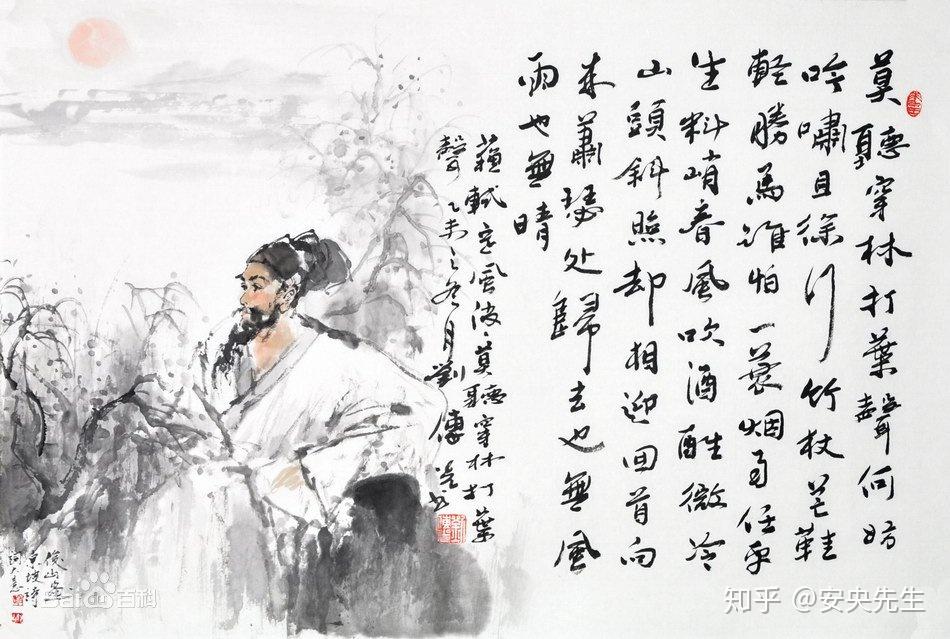 莫聽穿林打葉聲何妨
吟嘯且徐行竹杖芒鞋
輕勝馬誰怕一蓑烟雨任平
生料峭春風吹酒醒微冷
山頭斜照却相迎回首向
来蕭瑟处歸去也無風
雨也無晴
蘇軾定風波·莫聽穿林打葉
聲乙未之冬月劉傳
俊山寫
東坡詩
Baidu百科
知乎 @安央先生